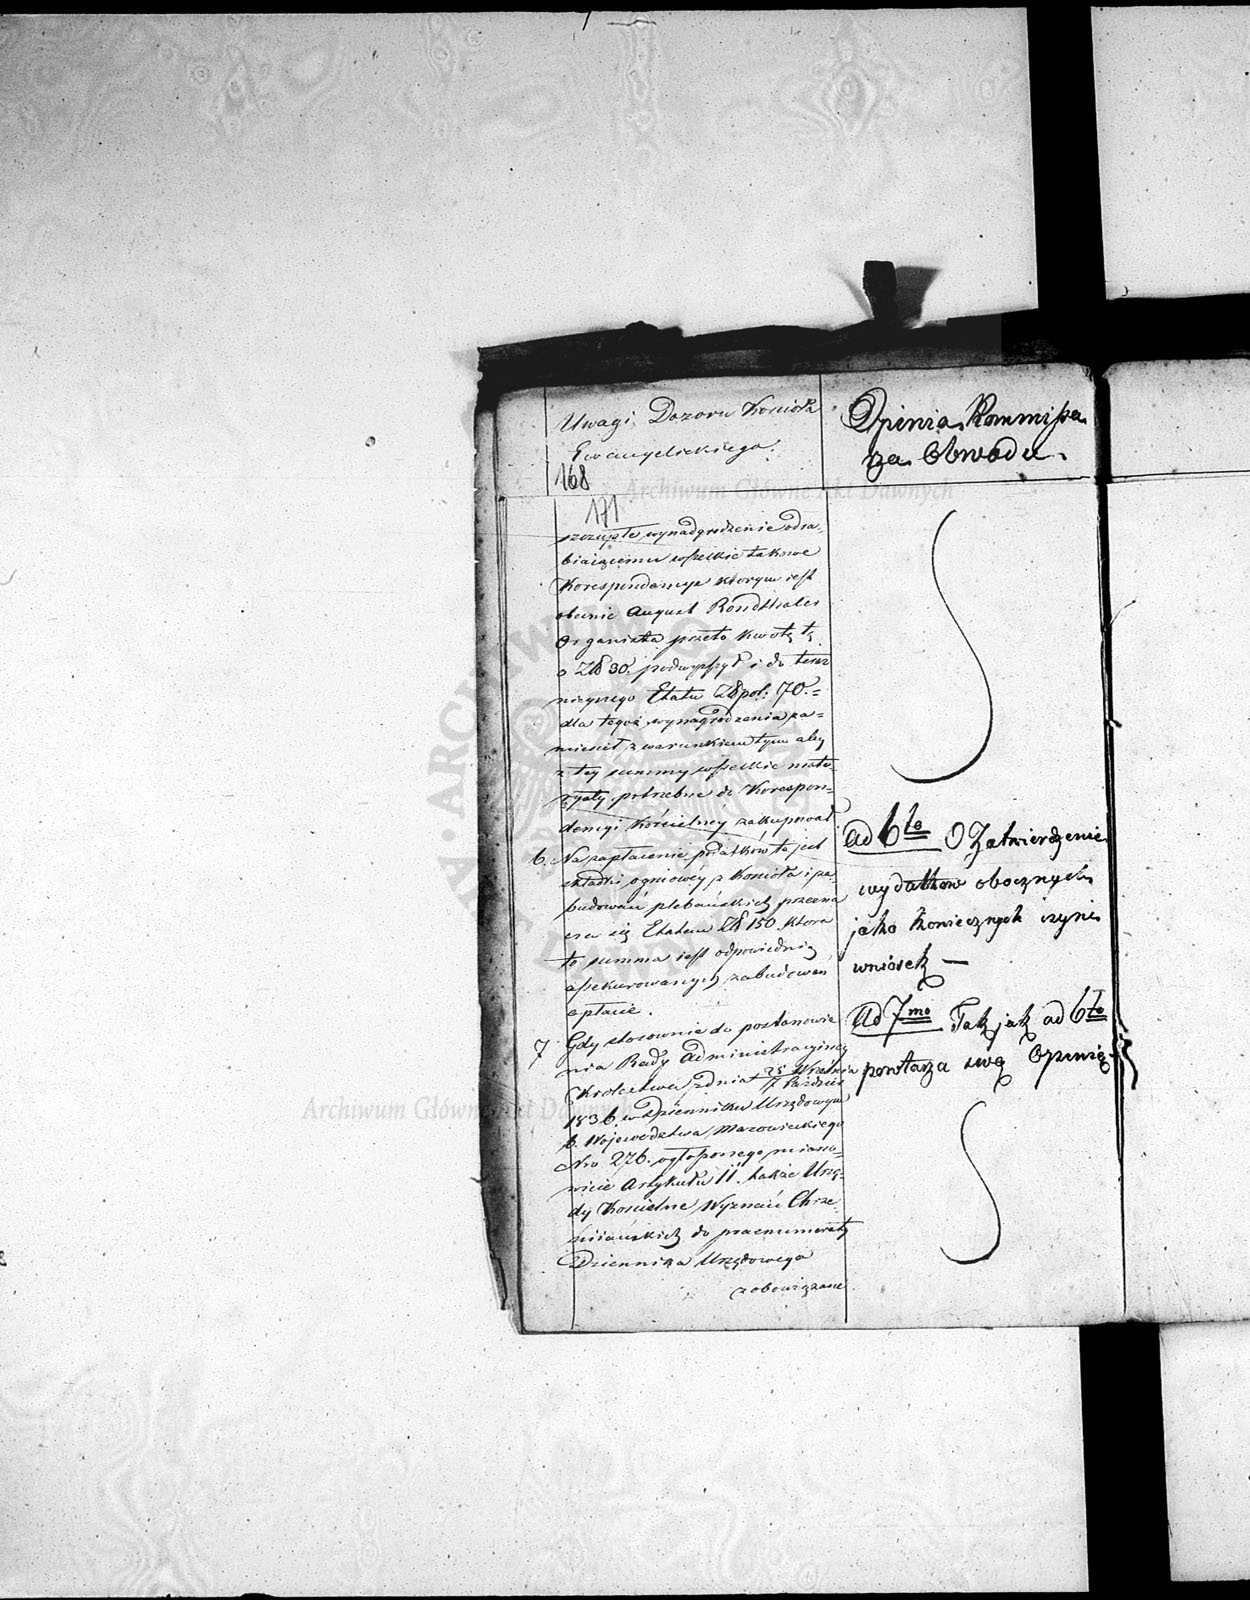 Uwagi Dozoru Kościoła
Ewangelickiego.
168
171
szczupłe wynadgrodzenie odra-
biaiącemu wszelkie takowe
Korespondencye którym iest
obecnie August Rondthaler
Organista przeto kwotę tę
o Złp 30. podwyższył i do teraz
nieyszego Etatu Złpol: 70.=
dla tegoż wynagrodzenia za=
mieścił, z warunkiem tym aby
z tey summy wszelkie mate-
ryały potrzebne do Korespon-
dencyi Kościelney zakupował
6. Na zapłacenie podatków to jest
składki ogniowéy z Kościoła i za-
budowań plebańskich przezna
cza się Etatem Złp 150. która
to summa iest odpowiednią
assekurowanych zabudowań
opłacie.
7 Gdy stosownie do postanowie
nia Rady Administracyiney
Królestwa z dnia 25 Września
7 Paździer
1836. w Dzienniku Urzędowym
b. Województwa Mazowieckiego
Nro 276. ogłoszonego miano-
wicie Artykułu 11. także Urzę-
dy Kościelne Wyznań Chrze-
ściiańskich do prenumeraty
Dziennika Urzędowego
zobowiązane
Opinia Kommissa
rza Obwodu.
Ad 6to O Zatwierdzenie
wydatków obocznych
jako koniecznych czyni
wniosek —
Ad 7mo Tak jak ad 6to
powtarza swą Opinię
Archiwum Główne Akt Dawnych
Archiwum Główne Akt Dawnych